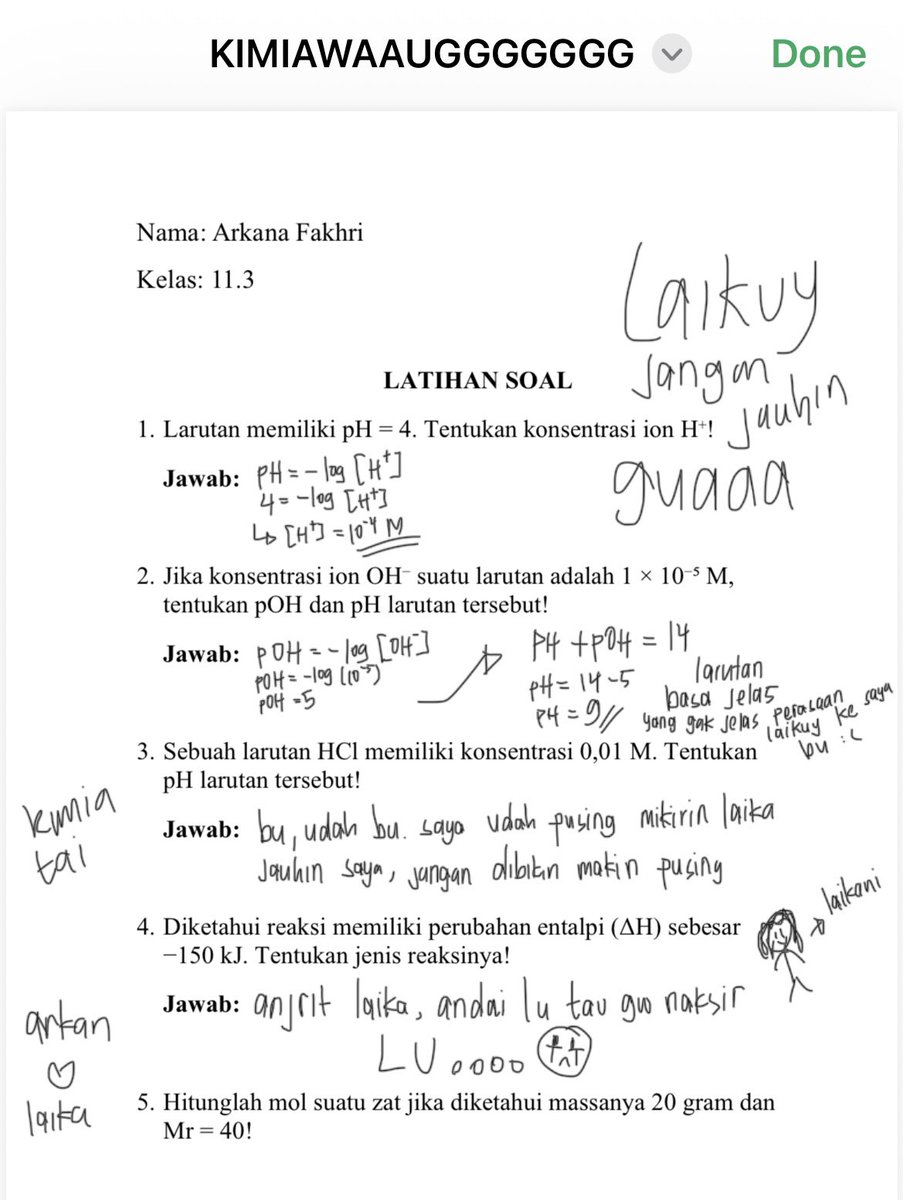 KIMIAWAAUGGGGGGG
Done
Nama: Arkana Fakhri
Kelas: 11.3
Laikuy
jangan
jauhin
guaaa
LATIHAN SOAL
1. Larutan memiliki pH = 4. Tentukan konsentrasi ion H⁺!
Jawab: pH = -log [H⁺]
4 = -log [H⁺]
↳ [H⁺] = 10⁻⁴ M
2. Jika konsentrasi ion OH⁻ suatu larutan adalah 1 × 10⁻⁵ M,
tentukan pOH dan pH larutan tersebut!
Jawab: pOH = -log [OH⁻]
pOH = -log (10⁻⁵)
pOH = 5
pH + pOH = 14
pH = 14 - 5
pH = 9//
larutan
basa jelas
yang gak jelas perasaan saya
laikuy ke
bu :(
3. Sebuah larutan HCl memiliki konsentrasi 0,01 M. Tentukan
pH larutan tersebut!
kimia
tai
Jawab: bu, udah bu. saya udah pusing mikirin laika
jauhin saya, jangan dibikin makin pusing
4. Diketahui reaksi memiliki perubahan entalpi (ΔH) sebesar
−150 kJ. Tentukan jenis reaksinya!
laikani
Jawab: anjrit laika, andai lu tau gw naksir
LU oooo
arkan
♡
laika
5. Hitunglah mol suatu zat jika diketahui massanya 20 gram dan
Mr = 40!